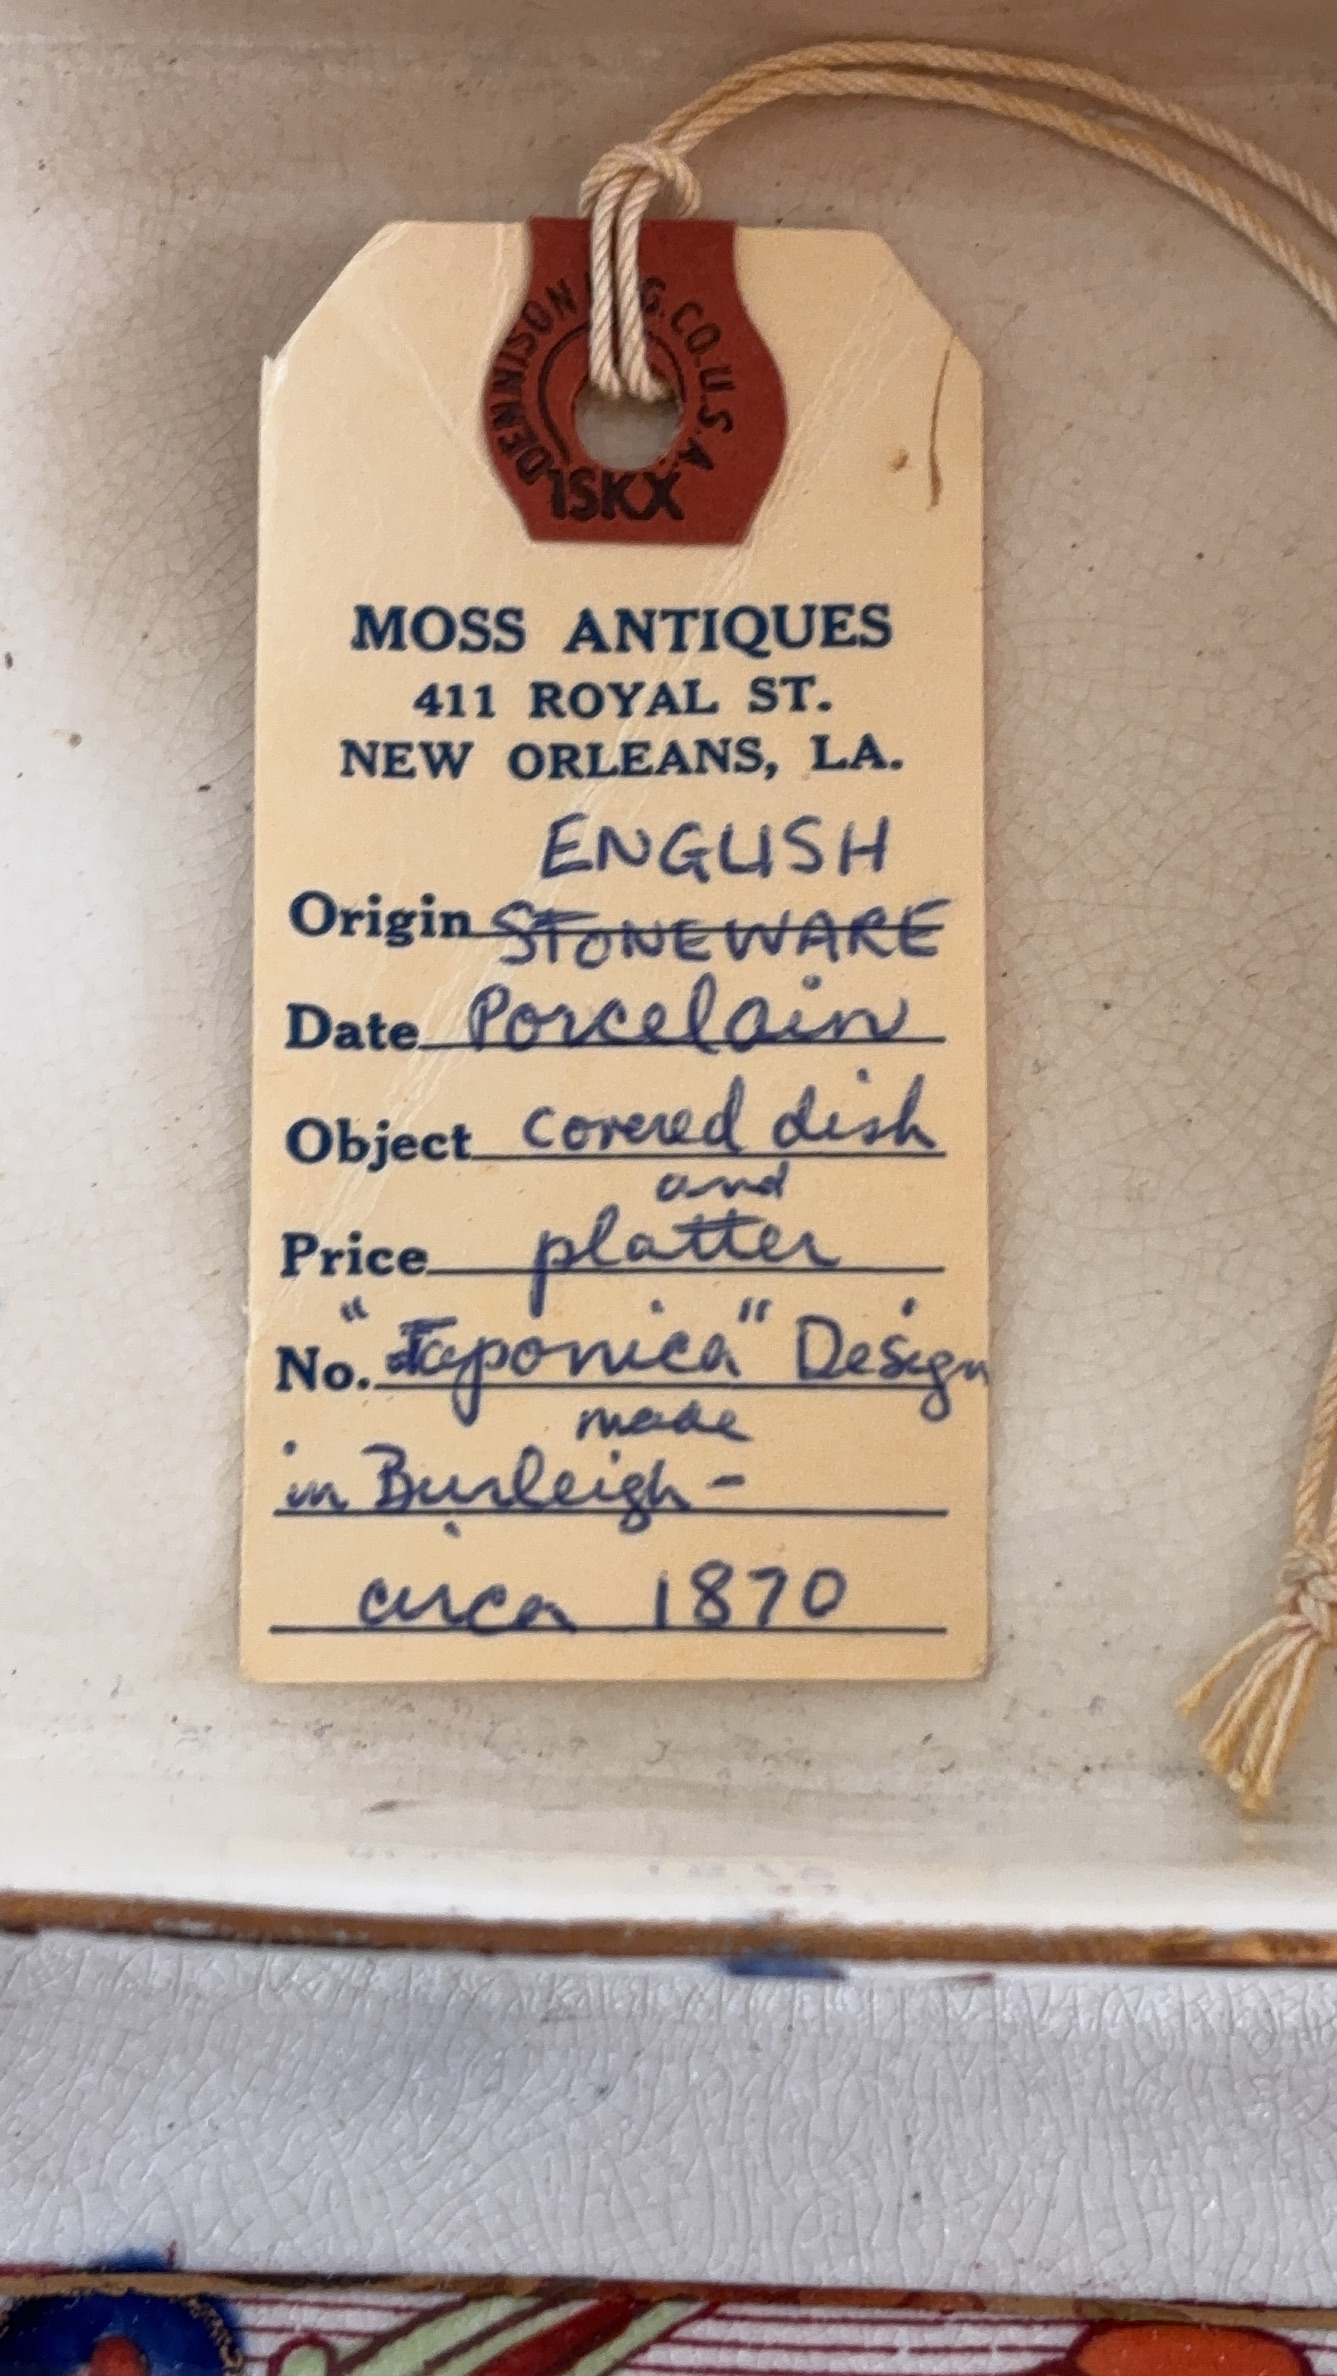 DENNISON M'F'G.CO.U.S.A.
1SKX
MOSS ANTIQUES
411 ROYAL ST.
NEW ORLEANS, LA.
ENGLISH
Origin STONEWARE
Date Porcelain
Object covered dish
and
Price platter
No. "Japonica" Design
made
in Burleigh -
circa 1870